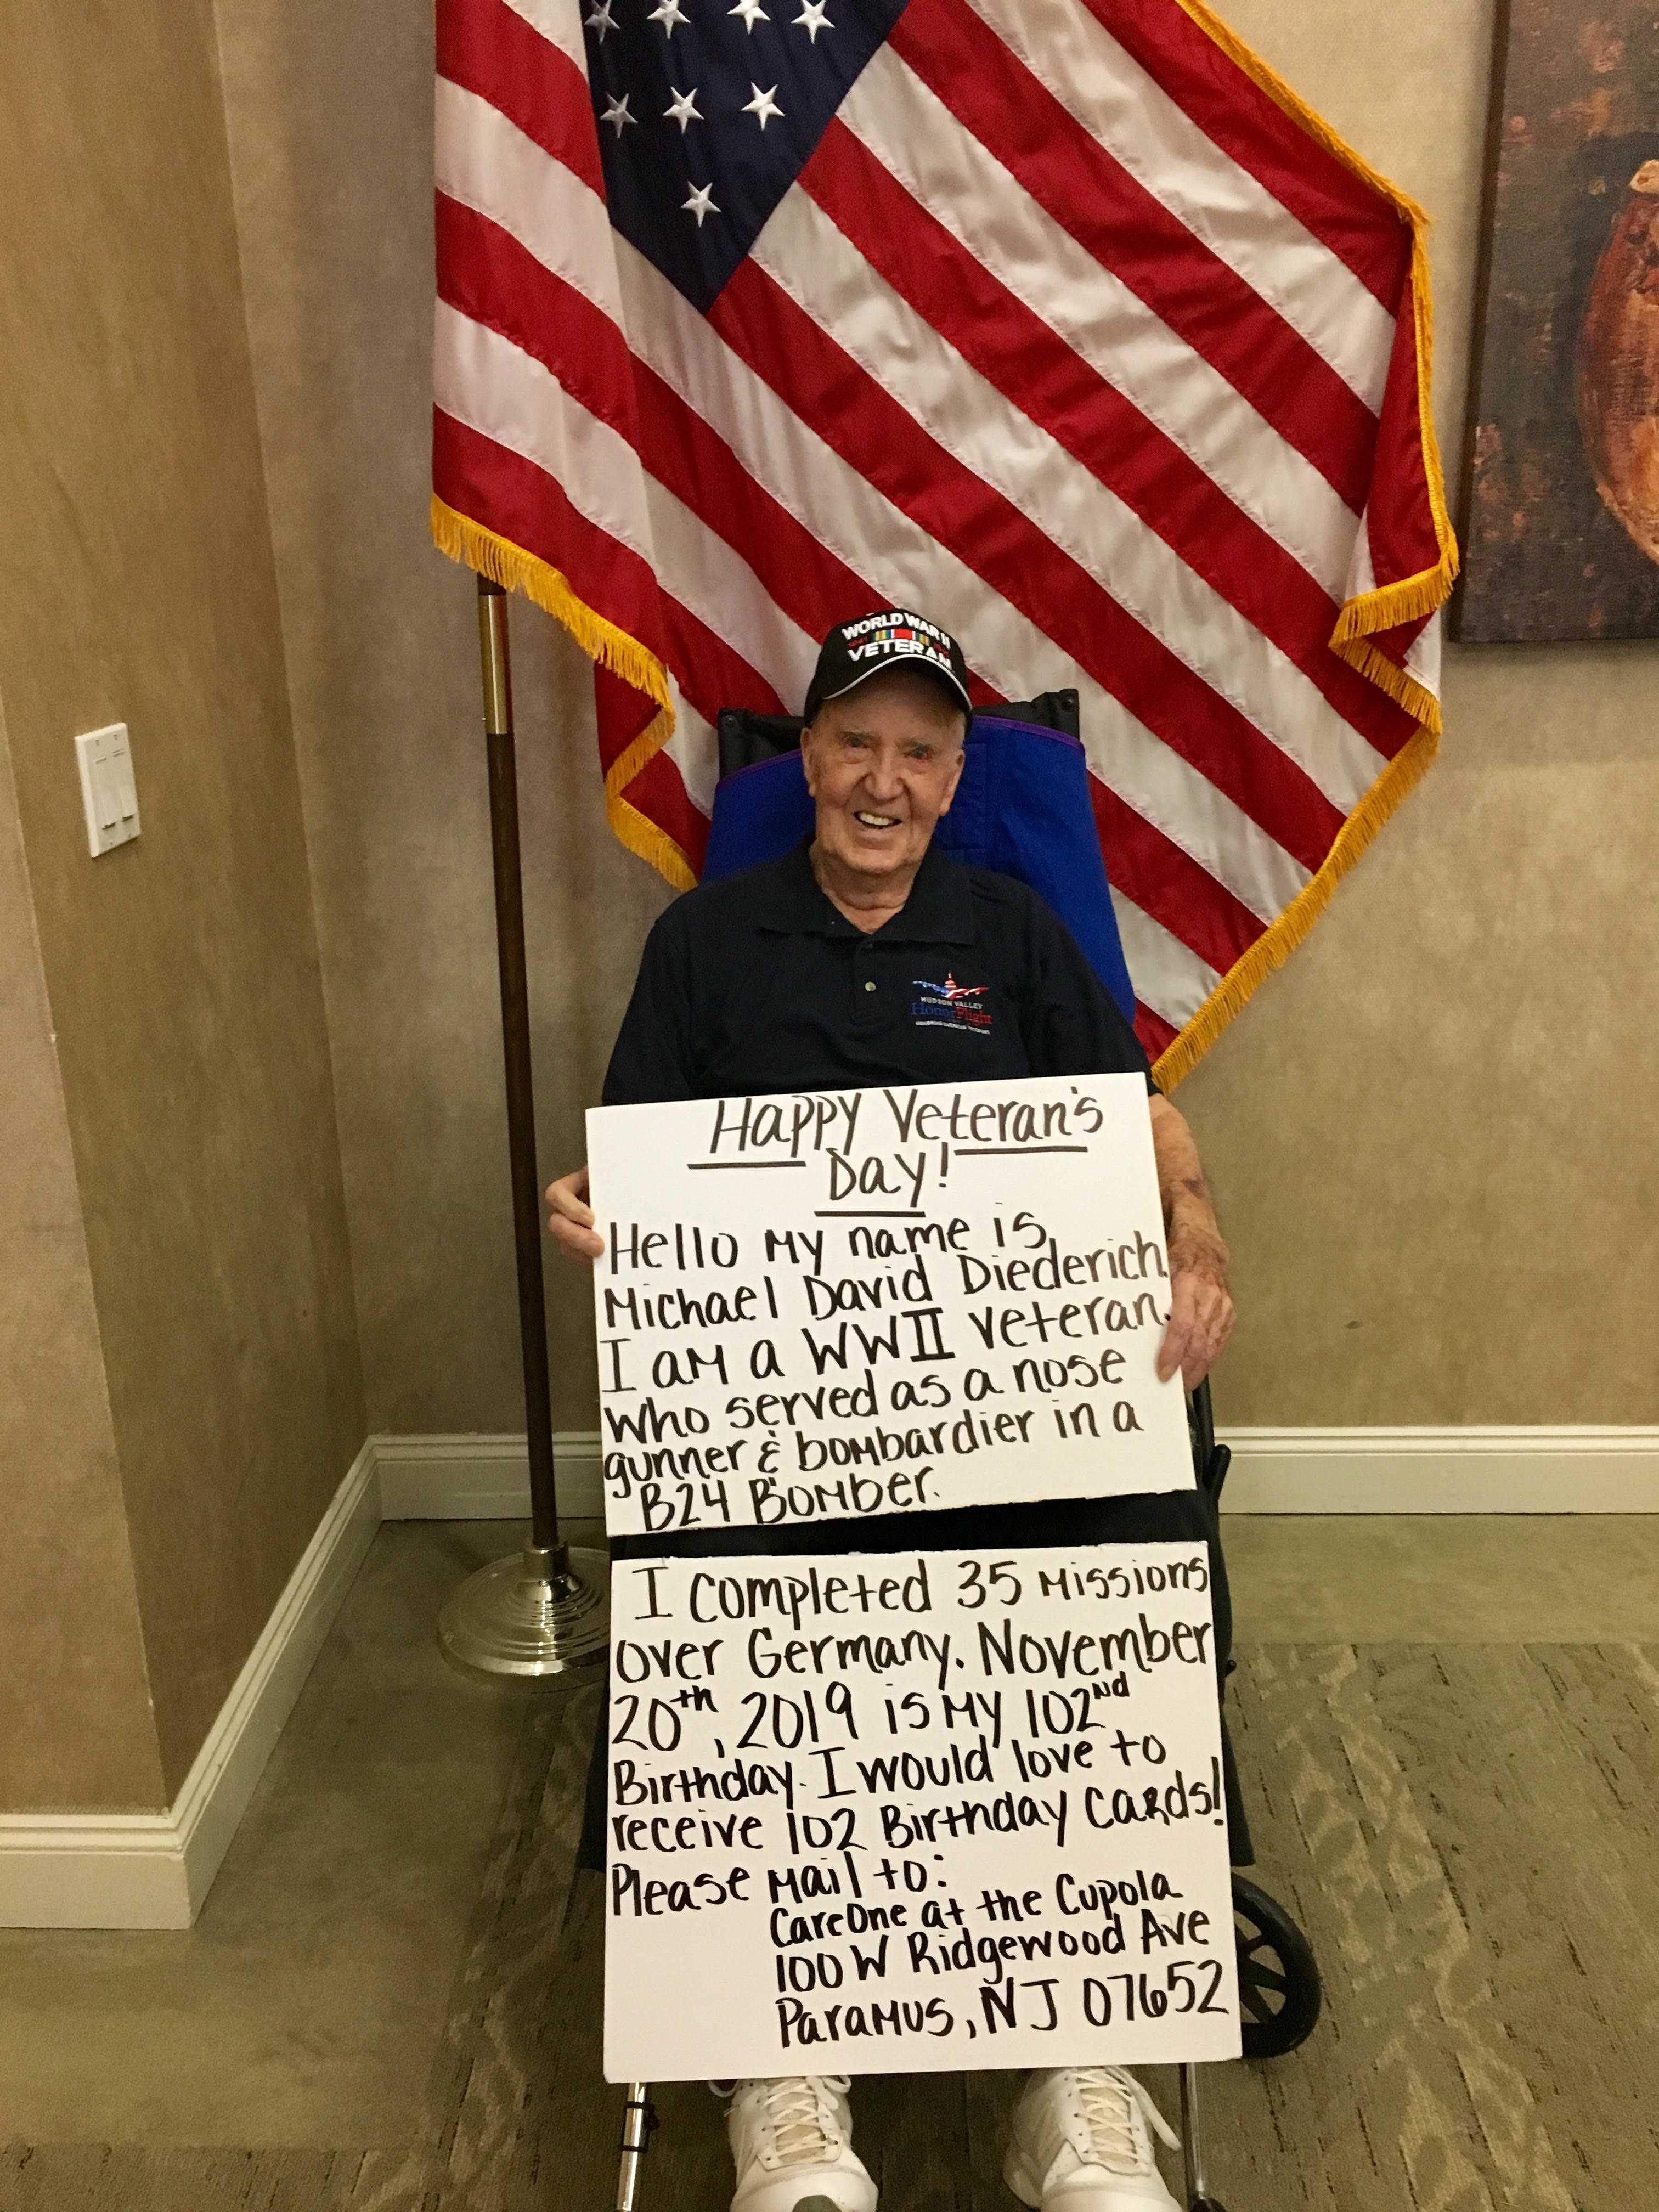 WORLD WAR II
VETERAN
HUDSON VALLEY
HonorFlight
Happy Veteran's
Day!
Hello My name is
Michael David Diederich.
I am a WWII veteran.
who served as a nose
gunner & bombardier in a
B24 Bomber.
I completed 35 missions
over Germany. November
20th, 2019 is my 102nd
Birthday. I would love to
receive 102 Birthday cards!
Please mail to:
CareOne at the Cupola
100 W Ridgewood Ave
Paramus, NJ 07652